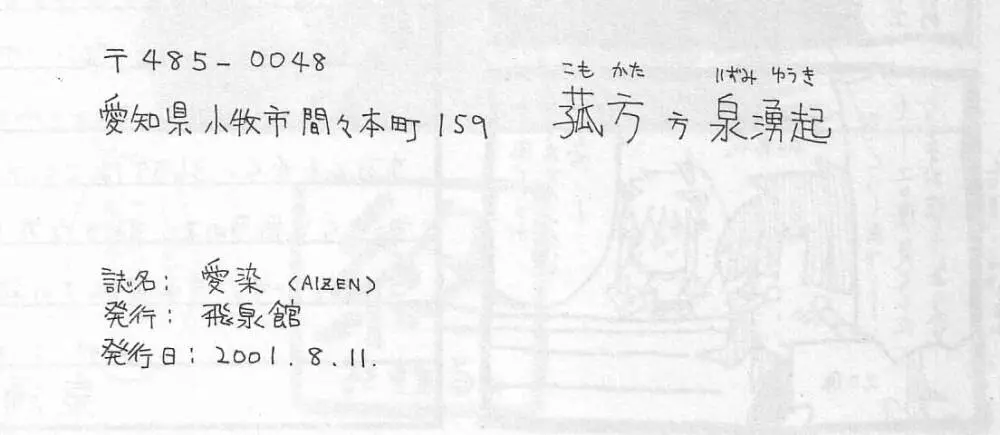 〒485-0048
こも かた いずみ ゆうき
愛知県小牧市間々本町159 菰方 方 泉湧起
誌名: 愛染 (AIZEN)
発行: 飛泉館
発行日: 2001.8.11.